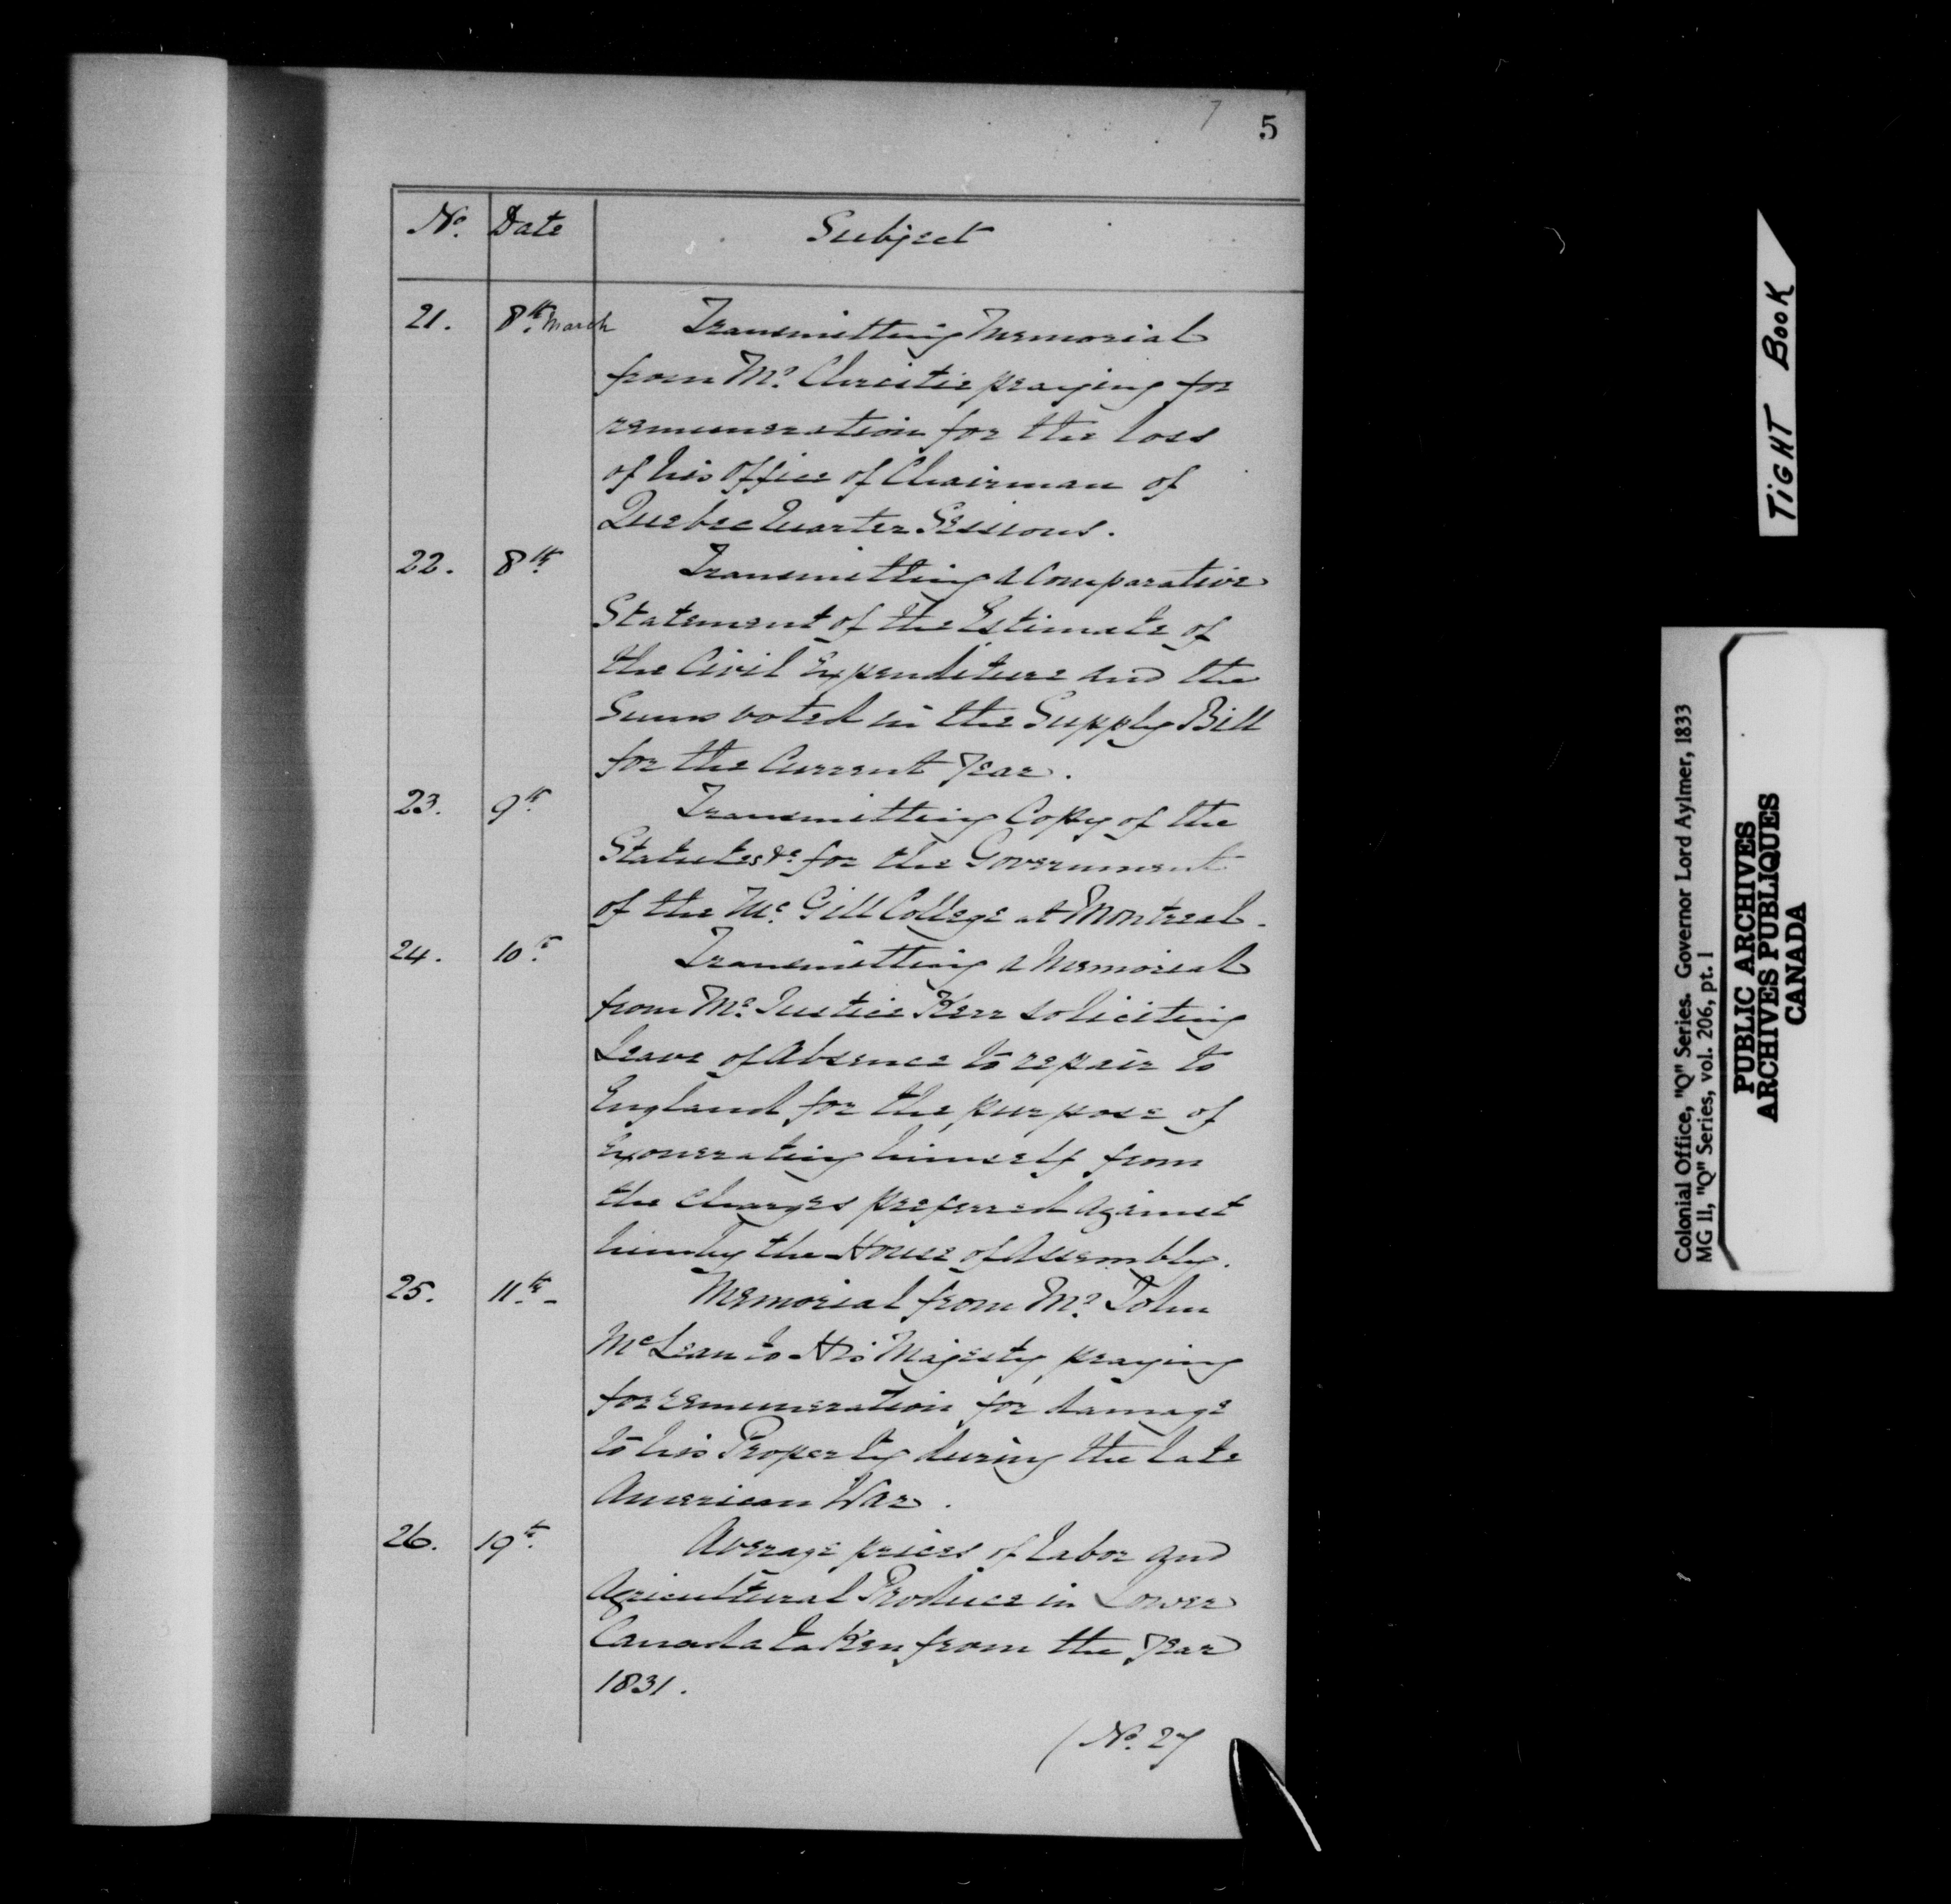 7
5
No. Date Subject
21. 8th March Transmitting Memorial
from Mr. Christie praying for
remuneration for the loss
of his Office of Chairman of
Quebec Quarter Sessions.
22. 8th Transmitting a Comparative
Statement of the Estimate of
the Civil Expenditure and the
Sums voted in the Supply Bill
for the Current Year.
23. 9th Transmitting Copy of the
Statutes &c for the Government
of the Mc Gill College at Montreal.
24. 10th Transmitting a Memorial
from Mr. Justice Kerr soliciting
Leave of Absence to repair to
England for the purpose of
Exonerating himself from
the Charges preferred against
him by the House of Assembly.
25. 11th - Memorial from Mr. John
McLean to His Majesty, praying
for remuneration for damage
to his Property during the late
American War.
26. 19th Average prices of Labor and
Agricultural Produce in Lower
Canada taken from the Year
1831.
(No. 27
TIGHT BOOK
Colonial Office, "Q" Series. Governor Lord Aylmer, 1833
MG 11, "Q" Series, vol. 206, pt. 1
PUBLIC ARCHIVES
ARCHIVES PUBLIQUES
CANADA